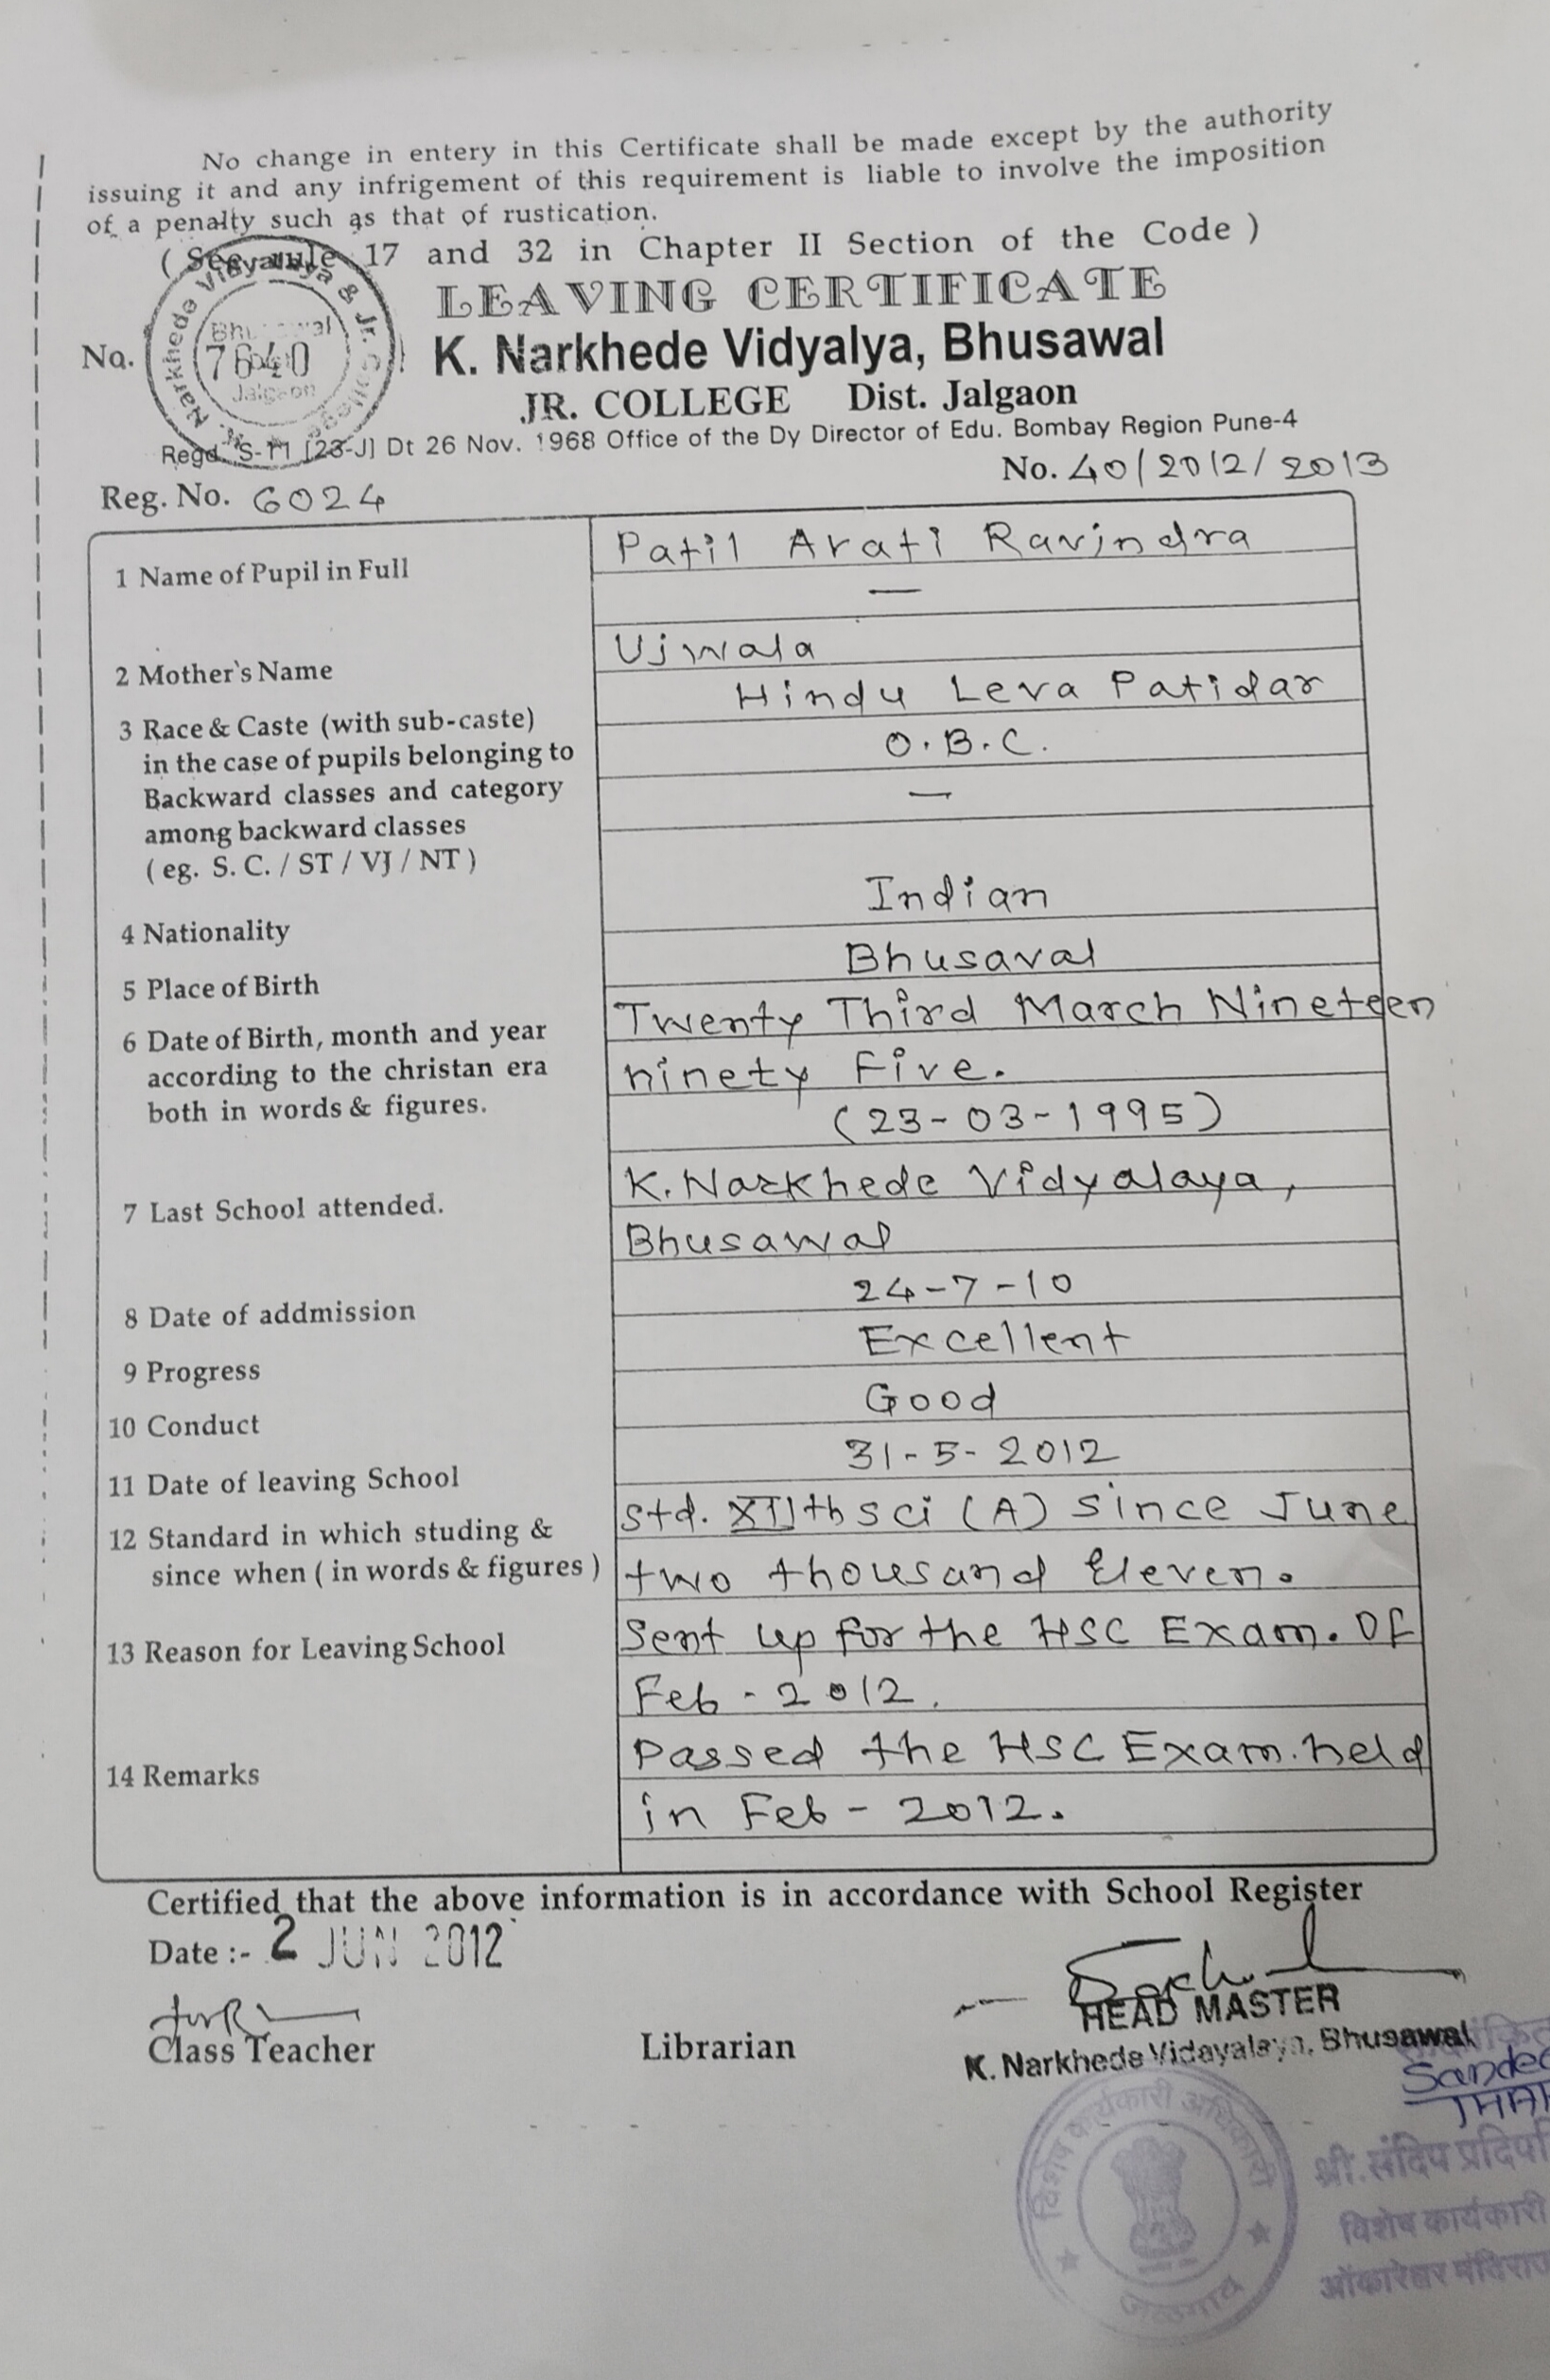 No change in entery in this Certificate shall be made except by the authority
issuing it and any infrigement of this requirement is liable to involve the imposition
of a penalty such as that of rustication.
( See rule 17 and 32 in Chapter II Section of the Code )
LEAVING CERTIFICATE
No. 7640
K. Narkhede Vidyalya, Bhusawal
JR. COLLEGE Dist. Jalgaon
Regd. S-11 [23-J] Dt 26 Nov. 1968 Office of the Dy Director of Edu. Bombay Region Pune-4
Narkhede Vidyalaya & Jr. College
Bhusawal
Jalgaon
No. 40/2012/2013
Reg. No. 6024
1 Name of Pupil in Full
Patil Arati Ravindra
—
2 Mother's Name
Ujwala
3 Race & Caste (with sub-caste)
in the case of pupils belonging to
Backward classes and category
among backward classes
( eg. S. C. / ST / VJ / NT )
Hindu Leva Patidar
O.B.C.
—
4 Nationality
Indian
5 Place of Birth
Bhusaval
6 Date of Birth, month and year
according to the christan era
both in words & figures.
Twenty Third March Nineteen
ninety Five.
(23-03-1995)
7 Last School attended.
K. Narkhede Vidyalaya,
Bhusawal
8 Date of addmission
24-7-10
9 Progress
Excellent
10 Conduct
Good
11 Date of leaving School
31-5-2012
12 Standard in which studing &
since when ( in words & figures )
Std. XIIth sci (A) since June
two thousand Eleven.
13 Reason for Leaving School
Sent up for the HSC Exam. Of
Feb - 2012.
14 Remarks
Passed the HSC Exam. held
in Feb - 2012.
Certified that the above information is in accordance with School Register
Date :- 2 JUN 2012
Class Teacher
Librarian
HEAD MASTER
K. Narkhede Vidayalaya, Bhusawal
विशेष कार्यकारी अधिकारी
जळगाव
श्री. संदिप प्रदिप
विशेष कार्यकारी